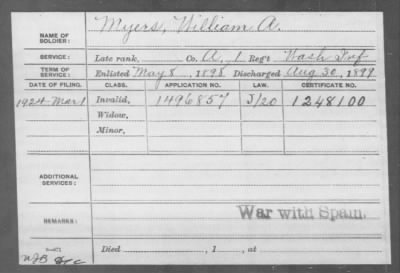 NAME OF SOLDIER: Myers, William A.
SERVICE: Late rank, Co. A, 1 Reg't Wash Inf
TERM OF SERVICE: Enlisted May 8, 1898, Discharged Aug 30, 1899
DATE OF FILING. CLASS. APPLICATION NO. LAW. CERTIFICATE NO.
1924 Mar 1 Invalid, 1496857 J/20 1248100
Widow,
Minor,
ADDITIONAL SERVICES:
REMARKS: War with Spain.
Died , 1 , at